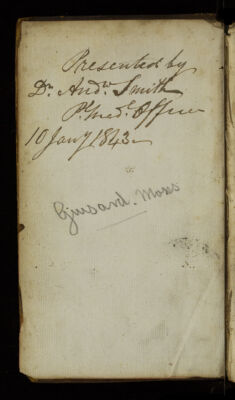 Presented by
Dr. Andw. Smith
Pl. Medl. Officer
10 Jany 1843
Moss